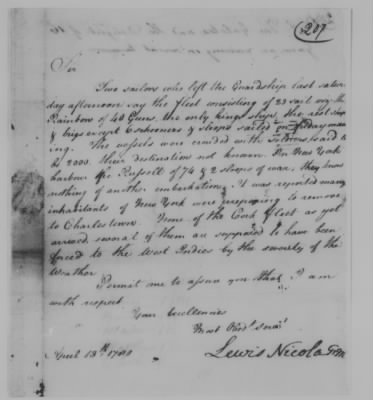 207
Sir
Two sailors who left the Guardship last satur-
day afternoon say the fleet consisting of 23 sail viz. the
Rainbow of 40 Guns, the only kings ship, the rest ships
& brigs except 6 schooners & sloops sailed on friday morn-
ing. The vessels were crowded with Soldiers said to
be 2000. their destination not known. In New York
harbour the Russell of 74 & 2 sloops of war. they knew
nothing of another embarkation. It was reported many
inhabitants of New York were preparing to remove
to Charles town. None of the Cork fleet as yet
arrived, several of them are supposed to have been
forced to the West Indies by the severity of the
Weather
Permit me to assure you that I am
with respect
Your Excellencies
Most Obdt. Servt.
Lewis Nicola
April 13th 1780